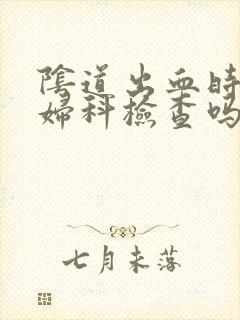 陰道出血時
婦科檢查嗎
七月未落